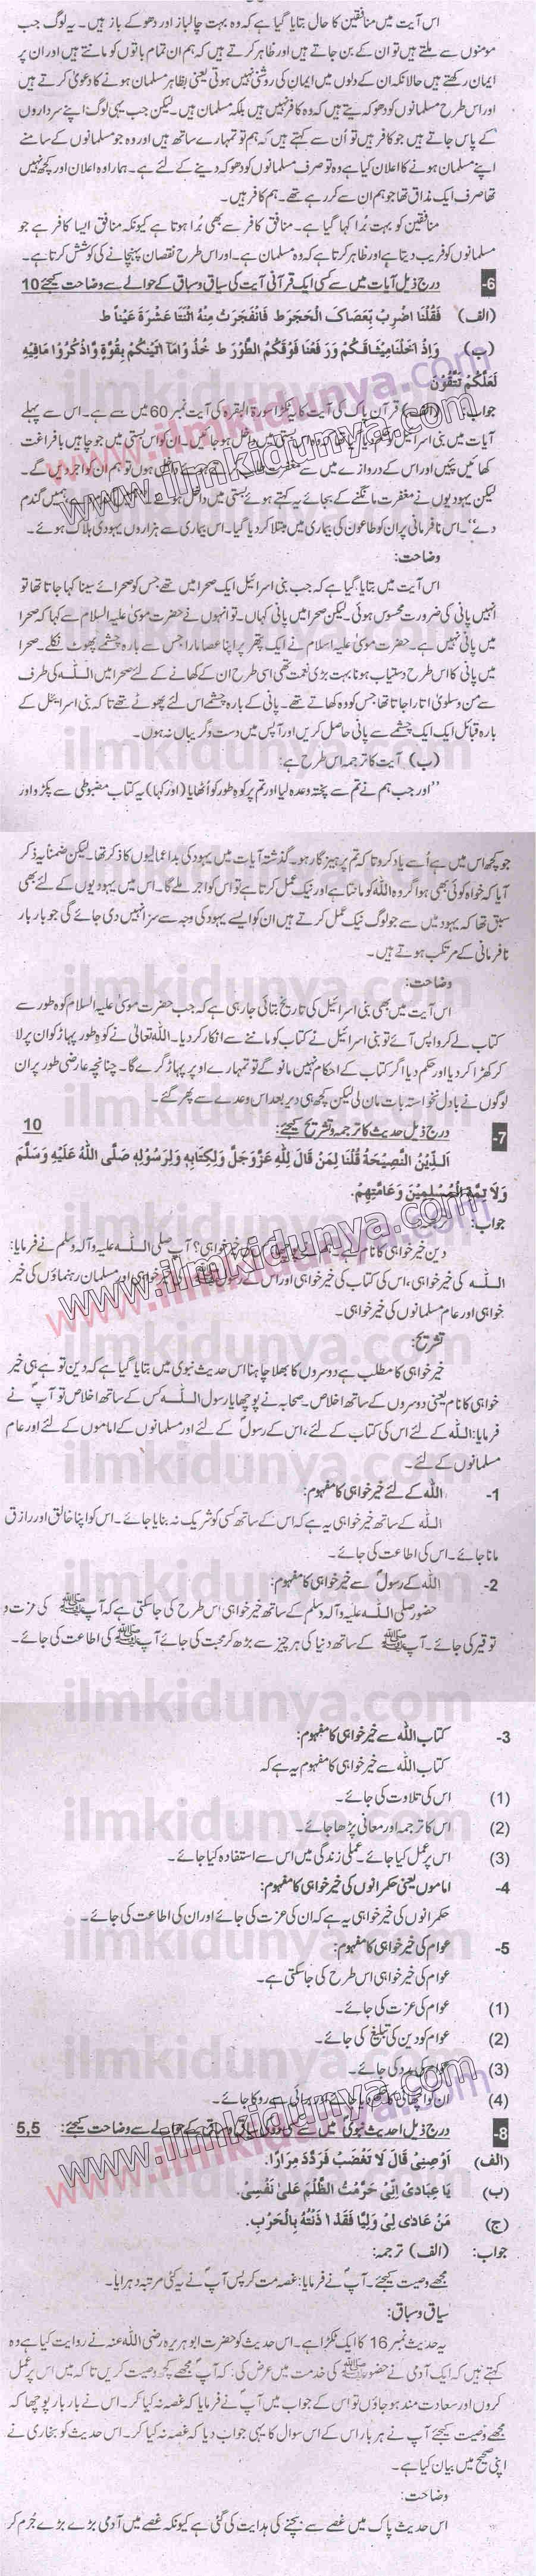 اس آیت میں منافقین کا حال بتایا گیا ہے کہ وہ بہت چالباز اور دھوکے باز ہیں۔ یہ لوگ جب
مومنوں سے ملتے ہیں تو ان کے بن جاتے ہیں اور ظاہر کرتے ہیں کہ ہم ان تمام باتوں کو مانتے ہیں اور ان پر
ایمان رکھتے ہیں حالانکہ ان کے دلوں میں ایمان کی روشنی نہیں ہوتی یعنی بظاہر مسلمان ہونے کا دعویٰ کرتے ہیں
اور اس طرح مسلمانوں کو دھوکہ دیتے ہیں کہ وہ کافر نہیں ہیں بلکہ مسلمان ہیں۔ لیکن جب یہی لوگ اپنے سرداروں
کے پاس جاتے ہیں جو کافر ہیں تو اُن سے کہتے ہیں کہ ہم تو تمہارے ساتھ ہیں اور وہ جو مسلمانوں کے سامنے
اپنے مسلمان ہونے کا اعلان کیا ہے وہ تو صرف مسلمانوں کو دھوکہ دینے کے لئے ہے۔ ہمارا وہ اعلان اور کچھ نہیں
تھا صرف ایک مذاق تھا جو ہم ان سے کر رہے تھے۔ ہم کافر ہیں۔
منافقین کو بہت بُرا کہا گیا ہے۔ منافق کافر سے بھی بُرا ہوتا ہے کیونکہ منافق ایسا کافر ہے جو
مسلمانوں کو فریب دیتا ہے اور ظاہر کرتا ہے کہ وہ مسلمان ہے۔ اور اس طرح نقصان پہنچانے کی کوشش کرتا ہے۔
6- درج ذیل آیات میں سے کسی ایک قرآنی آیت کی سیاق و سباق کے حوالے سے وضاحت کیجئے 10
(الف) فَقُلْنَا اضْرِبْ بِعَصَاکَ الْحَجَرَ ط فَانْفَجَرَتْ مِنْهُ اثْنَتَا عَشْرَةَ عَيْنًا ط
(ب) وَاِذْ اَخَذْنَا مِيْثَاقَكُمْ وَرَفَعْنَا فَوْقَكُمُ الطُّوْرَ ط خُذُوْا مَا اٰتَيْنٰكُمْ بِقُوَّةٍ وَّاذْكُرُوْا مَافِيْهِ
لَعَلَّكُمْ تَتَّقُوْنَ
جواب: (الف) قرآن پاک کی آیت کا یہ ٹکڑا سورۃ البقرہ کی آیت نمبر 60 میں سے ہے۔ اس سے پہلے
آیات میں بنی اسرائیل بستی میں داخل ہو جائیں۔ ان کو اس بستی میں جو چاہیں با فراغت
کھائیں پئیں اور اس کے دروازے میں سے مغفرت ہوں تو ہم ان کو اجر دیں گے۔
لیکن یہودیوں نے مغفرت مانگنے کے بجائے یہ کہتے ہوئے بستی میں داخل ہوئے ہمیں گندم
دے“۔ اس نافرمانی پر ان کو طاعون کی بیماری میں مبتلا کر دیا گیا۔ اس بیماری سے ہزاروں یہودی ہلاک ہوئے۔
وضاحت:
اس آیت میں بتایا گیا ہے کہ جب بنی اسرائیل ایک صحرا میں تھے جس کو صحرائے سینا کہا جاتا تھا تو
انہیں پانی کی ضرورت محسوس ہوئی۔ لیکن صحرا میں پانی کہاں۔ تو انہوں نے حضرت موسیٰ علیہ السلام سے کہا کہ صحرا
میں پانی نہیں ہے۔ حضرت موسیٰ علیہ السلام نے ایک پتھر پر اپنا عصا مارا جس سے بارہ چشمے پھوٹ نکلے۔ صحرا
میں پانی کا اس طرح دستیاب ہونا بہت بڑی نعمت تھی اسی طرح ان کے کھانے کے لئے صحرا میں اللہ کی طرف
سے من و سلویٰ اتارا جاتا تھا جس کو وہ کھاتے تھے۔ پانی کے بارہ چشمے اس لئے پھوٹے تھے تاکہ بنی اسرائیل کے
بارہ قبائل ایک ایک چشمے سے پانی حاصل کریں اور آپس میں دست و گریباں نہ ہوں۔
(ب) آیت کا ترجمہ اس طرح ہے:
”اور جب ہم نے تم سے پختہ وعدہ لیا اور تم پر کوہ طور کو اُٹھایا (اور کہا) یہ کتاب مضبوطی سے پکڑو اور
جو کچھ اس میں ہے اُسے یاد کرو تاکہ تم پرہیز گار ہو۔ گذشتہ آیات میں یہود کی بداعمالیوں کا ذکر تھا۔ لیکن ضمناً یہ ذکر
آیا کہ خواہ کوئی بھی ہو اگر وہ اللہ کو مانتا ہے اور نیک عمل کرتا ہے تو اس کو اجر ملے گا۔ اس میں یہودیوں کے لئے بھی
سبق تھا کہ یہود میں سے جو لوگ نیک عمل کرتے ہیں ان کو ایسے یہود کی وجہ سے سزا نہیں دی جائے گی جو بار بار
نافرمانی کے مرتکب ہوتے ہیں۔
وضاحت:
اس آیت میں بھی بنی اسرائیل کی تاریخ بتائی جا رہی ہے کہ جب حضرت موسیٰ علیہ السلام کوہ طور سے
کتاب لے کر واپس آئے تو بنی اسرائیل نے کتاب کو ماننے سے انکار کر دیا۔ اللہ تعالیٰ نے کوہ طور پہاڑ کو ان پر لا
کر کھڑا کر دیا اور حکم دیا اگر کتاب کے احکام نہیں مانو گے تو تمہارے اوپر پہاڑ گرے گا۔ چنانچہ عارضی طور پر ان
لوگوں نے بادل نخواستہ بات مان لی لیکن کچھ ہی دیر بعد اس وعدے سے پھر گئے۔
7- درج ذیل حدیث کا ترجمہ و تشریح کیجئے: 10
اَلدِّيْنُ النَّصِيْحَةُ قُلْنَا لِمَنْ قَالَ لِلّٰهِ عَزَّوَجَلَّ وَلِكِتَابِهٖ وَلِرَسُوْلِهٖ صَلَّى اللهُ عَلَيْهِ وَسَلَّمَ
وَلَائِمَّةِ الْمُسْلِمِيْنَ وَعَامَّتِهِمْ.
جواب:
دین خیر خواہی کا نام ہے خیر خواہی؟ آپ صلی اللہ علیہ وآلہ وسلم نے فرمایا:
اللہ کی خیر خواہی، اس کی کتاب کی خیر خواہی اور اس کے رسول خیر خواہی اور مسلمان رہنماؤں کی خیر
خواہی اور عام مسلمانوں کی خیر خواہی۔
تشریح:
خیر خواہی کا مطلب ہے دوسروں کا بھلا چاہنا اس حدیث نبوی میں بتایا گیا ہے کہ دین تو ہے ہی خیر
خواہی کا نام یعنی دوسروں کے ساتھ اخلاص۔ صحابہ نے پوچھا یا رسول اللہ کس کے ساتھ اخلاص تو آپؐ نے
فرمایا: اللہ کے لئے اس کی کتاب کے لئے، اس کے رسولؐ کے لئے اور مسلمانوں کے اماموں کے لئے اور عام
مسلمانوں کے لئے۔
1- اللہ کے لئے خیر خواہی کا مفہوم:
اللہ کے ساتھ خیر خواہی یہ ہے کہ اس کے ساتھ کسی کو شریک نہ بنایا جائے۔ اس کو اپنا خالق اور رازق
مانا جائے۔ اس کی اطاعت کی جائے۔
2- اللہ کے رسولؐ سے خیر خواہی کا مفہوم:
حضور صلی اللہ علیہ وآلہ وسلم کے ساتھ خیر خواہی اس طرح کی جا سکتی ہے کہ آپ ﷺ کی عزت و
توقیر کی جائے۔ آپ ﷺ کے ساتھ دنیا کی ہر چیز سے بڑھ کر محبت کی جائے آپ ﷺ کی اطاعت کی جائے۔
3- کتاب اللہ سے خیر خواہی کا مفہوم:
کتاب اللہ سے خیر خواہی کا مفہوم یہ ہے کہ
(1) اس کی تلاوت کی جائے۔
(2) اس کا ترجمہ اور معانی پڑھا جائے۔
(3) اس پر عمل کیا جائے۔ عملی زندگی میں اس سے استفادہ کیا جائے۔
4- اماموں یعنی حکمرانوں کی خیر خواہی کا مفہوم:
حکمرانوں کی خیر خواہی یہ ہے کہ ان کی عزت کی جائے اور ان کی اطاعت کی جائے۔
5- عوام کی خیر خواہی کا مفہوم:
عوام کی خیر خواہی اس طرح کی جا سکتی ہے۔
(1) عوام کی عزت کی جائے۔
(2) عوام کو دین کی تبلیغ کی جائے۔
(3) عوام کی مدد کی جائے۔
(4) ان کو اچھائی سے روکا جائے۔
8- درج ذیل احادیث نبویؐ میں سے کے حوالے سے وضاحت کیجئے: 5,5
(الف) اَوْصِنِیْ قَالَ لَا تَغْضَبْ فَرَدَّدَ مِرَارًا.
(ب) يَا عِبَادِیْ اِنِّیْ حَرَّمْتُ الظُّلْمَ عَلیٰ نَفْسِیْ.
(ج) مَنْ عَادٰی لِیْ وَلِيًّا فَقَدْ اٰذَنْتُهُ بِالْحَرْبِ.
جواب: (الف) ترجمہ:
مجھے وصیت کیجئے۔ آپؐ نے فرمایا: غصہ مت کر پس آپؐ نے یہ کئی مرتبہ دہرایا۔
سیاق و سباق:
یہ حدیث نمبر 16 کا ایک ٹکڑا ہے۔ اس حدیث کو حضرت ابو ہریرہ رضی اللہ عنہ نے روایت کیا ہے وہ
کہتے ہیں کہ ایک آدمی نے حضور ﷺ کی خدمت میں عرض کی: کہ آپؐ مجھے کچھ وصیت کریں تاکہ میں اس پر عمل
کروں اور سعادت مند ہو جاؤں تو اس کے جواب میں آپؐ نے فرمایا کہ غصہ نہ کیا کر۔ اس نے بار بار پوچھا کہ
مجھے وصیت کیجئے آپ نے ہر بار اس کے اس سوال کا یہی جواب دیا کہ غصہ نہ کیا کر۔ اس حدیث کو بخاری نے
اپنی صحیح میں بیان کیا ہے۔
وضاحت:
اس حدیث پاک میں غصے سے بچنے کی ہدایت کی گئی ہے کیونکہ غصے میں آدمی بڑے بڑے جُرم کر